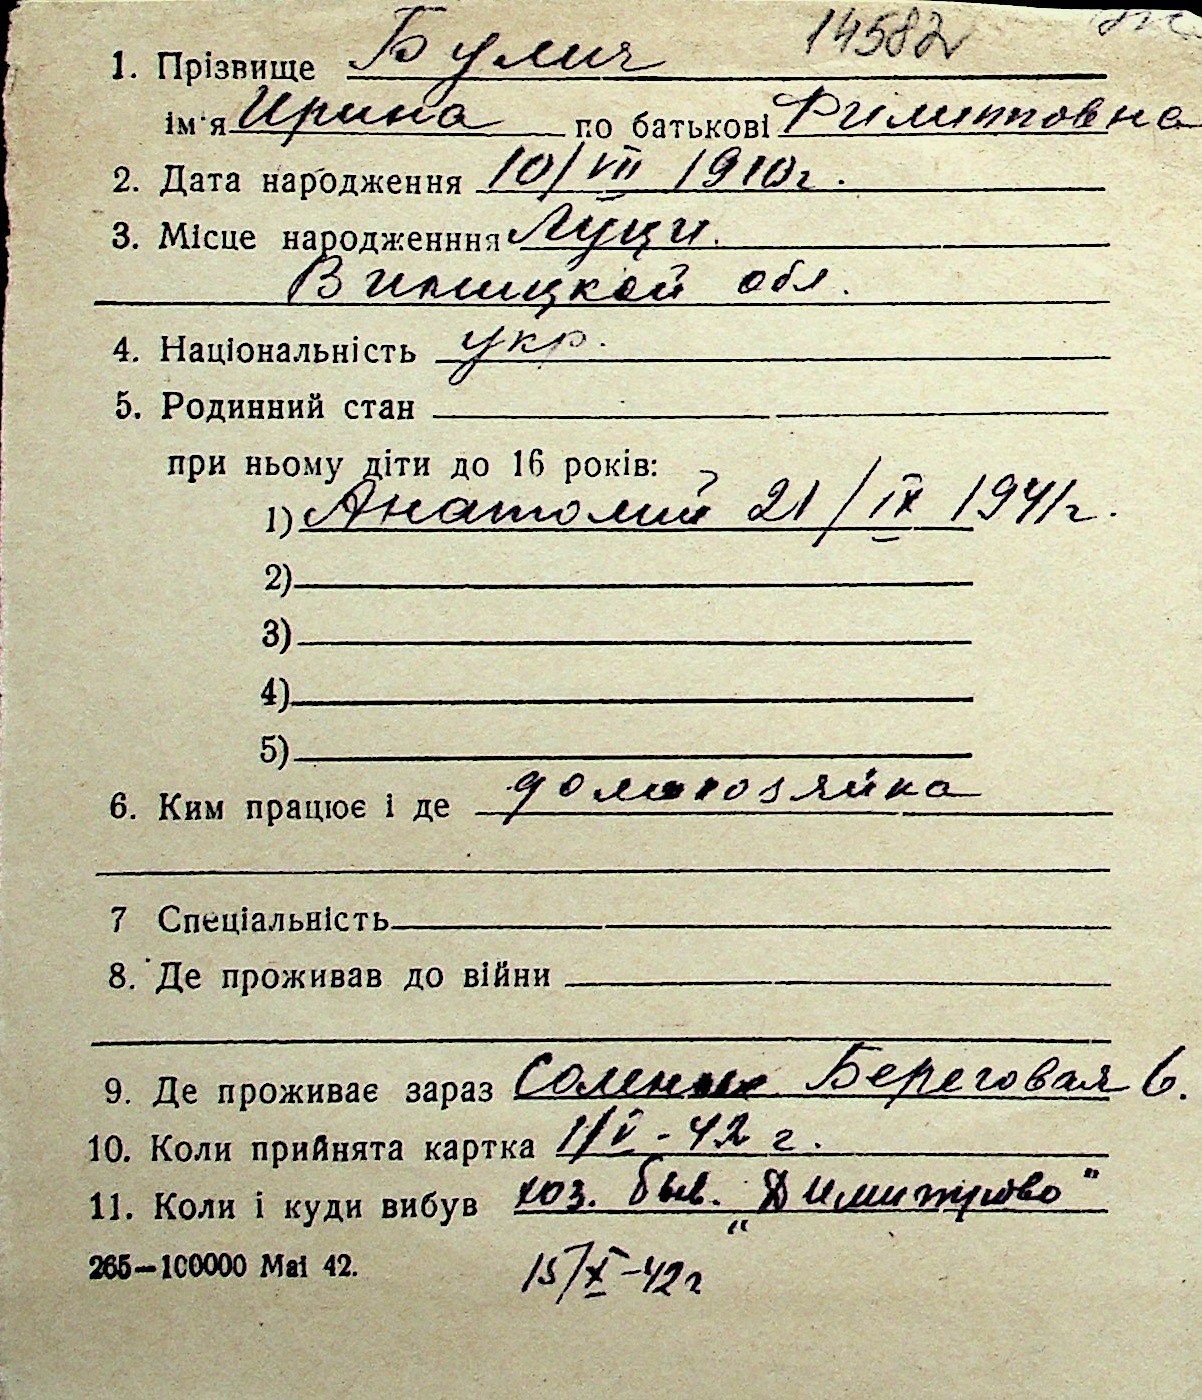 14582
1. Прізвище Булич
ім'я Ирина по батькові Филипповна
2. Дата народження 10/VII 1910г.
3. Місце народженння Луци.
Винницкой обл.
4. Національність укр.
5. Родинний стан
при ньому діти до 16 років:
1) Анатолий 21/IX 1941г.
2)
3)
4)
5)
6. Ким працює і де домохозяйка
7 Спеціальність
8. Де проживав до війни
9. Де проживає зараз Береговая 6.
10. Коли прийнята картка 1/V-42 г.
11. Коли і куди вибув хоз. быв. "Димитрово"
15/X-42г
265—100000 Маі 42.